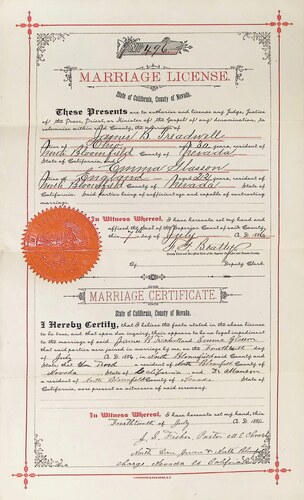 496
MARRIAGE LICENSE.
State of California, County of Nevada.
These Presents are to authorize and license any Judge, Justice
of the Peace, Priest, or Minister of the Gospel of any denomination, to
solemnize within said County, the marriage of
James B. Treadwell
Native of Ohio aged 30 years, resident of
North Bloomfield County of Nevada
State of California, and Emma Glasson
Native of England aged 22 years, resident of
North Bloomfield County of Nevada
State of California. Said parties being of sufficient age and capable of contracting
marriage.
In Witness Whereof, I have hereunto set my hand and
affixed the Seal of the Superior Court of said County
this 7 day of July A.D. 1886
F. G. Beatty
By Deputy Clerk.
MARRIAGE CERTIFICATE.
State of California, County of Nevada.
I Hereby Certify, that I believe the facts stated in the above license
to be true, and that upon due inquiry, there appears to be no legal impediment
to the marriage of said James B Treadwell and Emma Glasson
that said parties were joined in marriage by me on the Fourteenth day
of July A.D. 1886, in North Bloomfield County and
State; that a resident of North Bloomfield County of
Nevada State of California and
a resident of North Bloomfield County of Nevada
State of California, were present as witness of said ceremony.
In Witness Whereof, I have hereunto set my hand, this
Fourteenth of July A.D. 1886.
J. L. Pastor M E Church
North San Juan & North Bloomfield
charge Nevada Co California